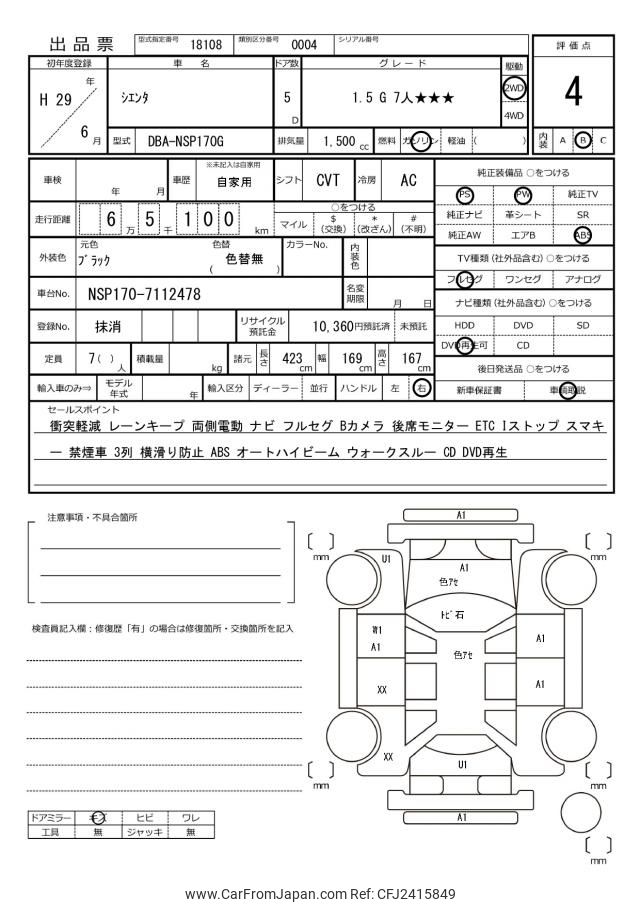 出品票
型式指定番号 18108 類別区分番号 0004 シリアル番号
評価点
4
内装 A B C
初年度登録 車名 ドア数 グレード 駆動
H 29 年 6 月
シエンタ
5 D
1.5 G 7人★★★
2WD
4WD
型式 DBA-NSP170G 排気量 1,500 cc 燃料 ガソリン 軽油 ( )
車検 年 月 車歴 ※未記入は自家用 自家用 シフト CVT 冷房 AC
走行距離 6 万 5 千 1 0 0 km
○をつける
マイル $ (交換) * (改ざん) # (不明)
外装色 元色 ブラック 色替 ( 色替無 ) カラーNo. 内装色
車台No. NSP170-7112478 名変期限 月 日
登録No. 抹消 リサイクル預託金 10,360円預託済 未預託
定員 7( ) 人 積載量 kg 諸元 長さ 423 cm 幅 169 cm 高さ 167 cm
輸入車のみ⇒ モデル年式 年 輸入区分 ディーラー 並行 ハンドル 左 右
純正装備品 ○をつける
PS PW 純正TV
純正ナビ 革シート SR
純正AW エアB ABS
TV種類(社外品含む) ○をつける
フルセグ ワンセグ アナログ
ナビ種類(社外品含む) ○をつける
HDD DVD SD
DVD再生可 CD
後日発送品 ○をつける
新車保証書 車輌取説
セールスポイント
衝突軽減 レーンキープ 両側電動 ナビ フルセグ Bカメラ 後席モニター ETC Iストップ スマキ
ー 禁煙車 3列 横滑り防止 ABS オートハイビーム ウォークスルー CD DVD再生
注意事項・不具合箇所
検査員記入欄：修復歴「有」の場合は修復箇所・交換箇所を記入
ドアミラー キズ ヒビ ワレ
工具 無 ジャッキ 無
A1
mm
mm
U1
A1
色アセ
トビ石
W1
A1
色アセ
A1
XX
A1
XX
U1
mm
mm
A1
mm
www.CarFromJapan.com Ref: CFJ2415849